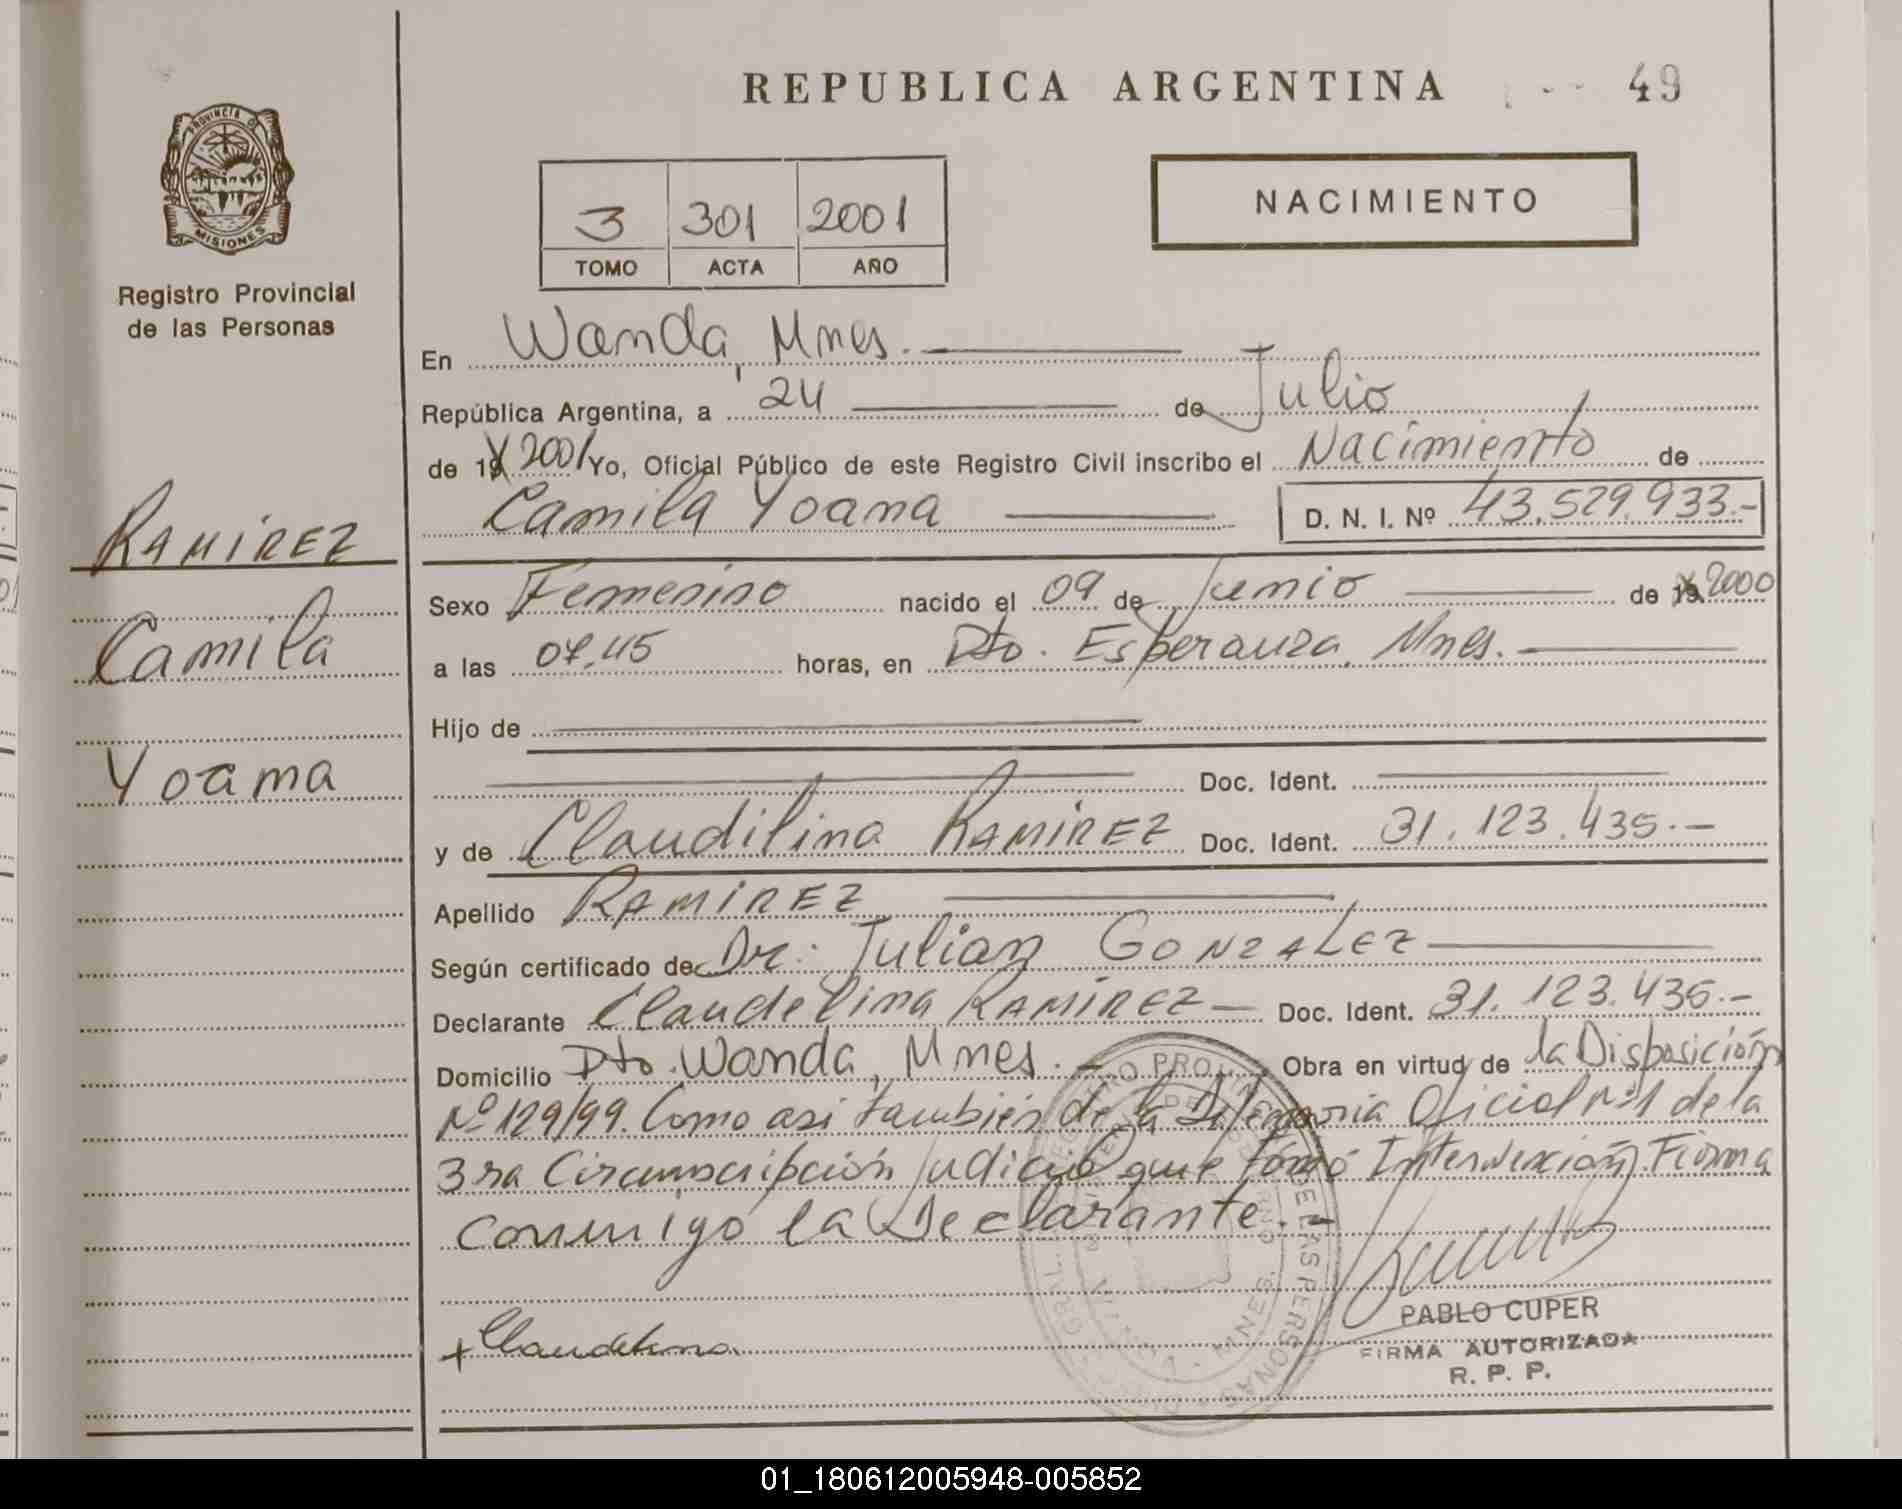 REPUBLICA ARGENTINA
49
PROVINCIA DE
MISIONES
Registro Provincial
de las Personas
3 301 2001
TOMO ACTA AÑO
NACIMIENTO
En Wanda, Mnes.
República Argentina, a 24 de Julio
de 19 2001 Yo, Oficial Público de este Registro Civil inscribo el Nacimiento de
Camila Yoana D. N. I. Nº 43.529.933.-
RAMIREZ
Camila
Yoana
Sexo Femenino nacido el 09 de Junio de 19 2000
a las 07.45 horas, en Dto. Esperanza, Mnes.
Hijo de
Doc. Ident.
y de Claudilina RAMIREZ Doc. Ident. 31.123.435.-
Apellido RAMIREZ
Según certificado de Dr: Julian GONZALEZ
Declarante Claudelina RAMIREZ - Doc. Ident. 31.123.435.-
Domicilio Dto. Wanda, Mnes.- Obra en virtud de la Disposición
Nº 129/99. Como asi también de la Defensoria Oficial nº1 de la
3ra Circunscripción Judicial que tomó Intervención. Firma
conmigo la Declarante.-
+ Claudelina
PABLO CUPER
FIRMA AUTORIZADA
R. P. P.
01_180612005948-005852